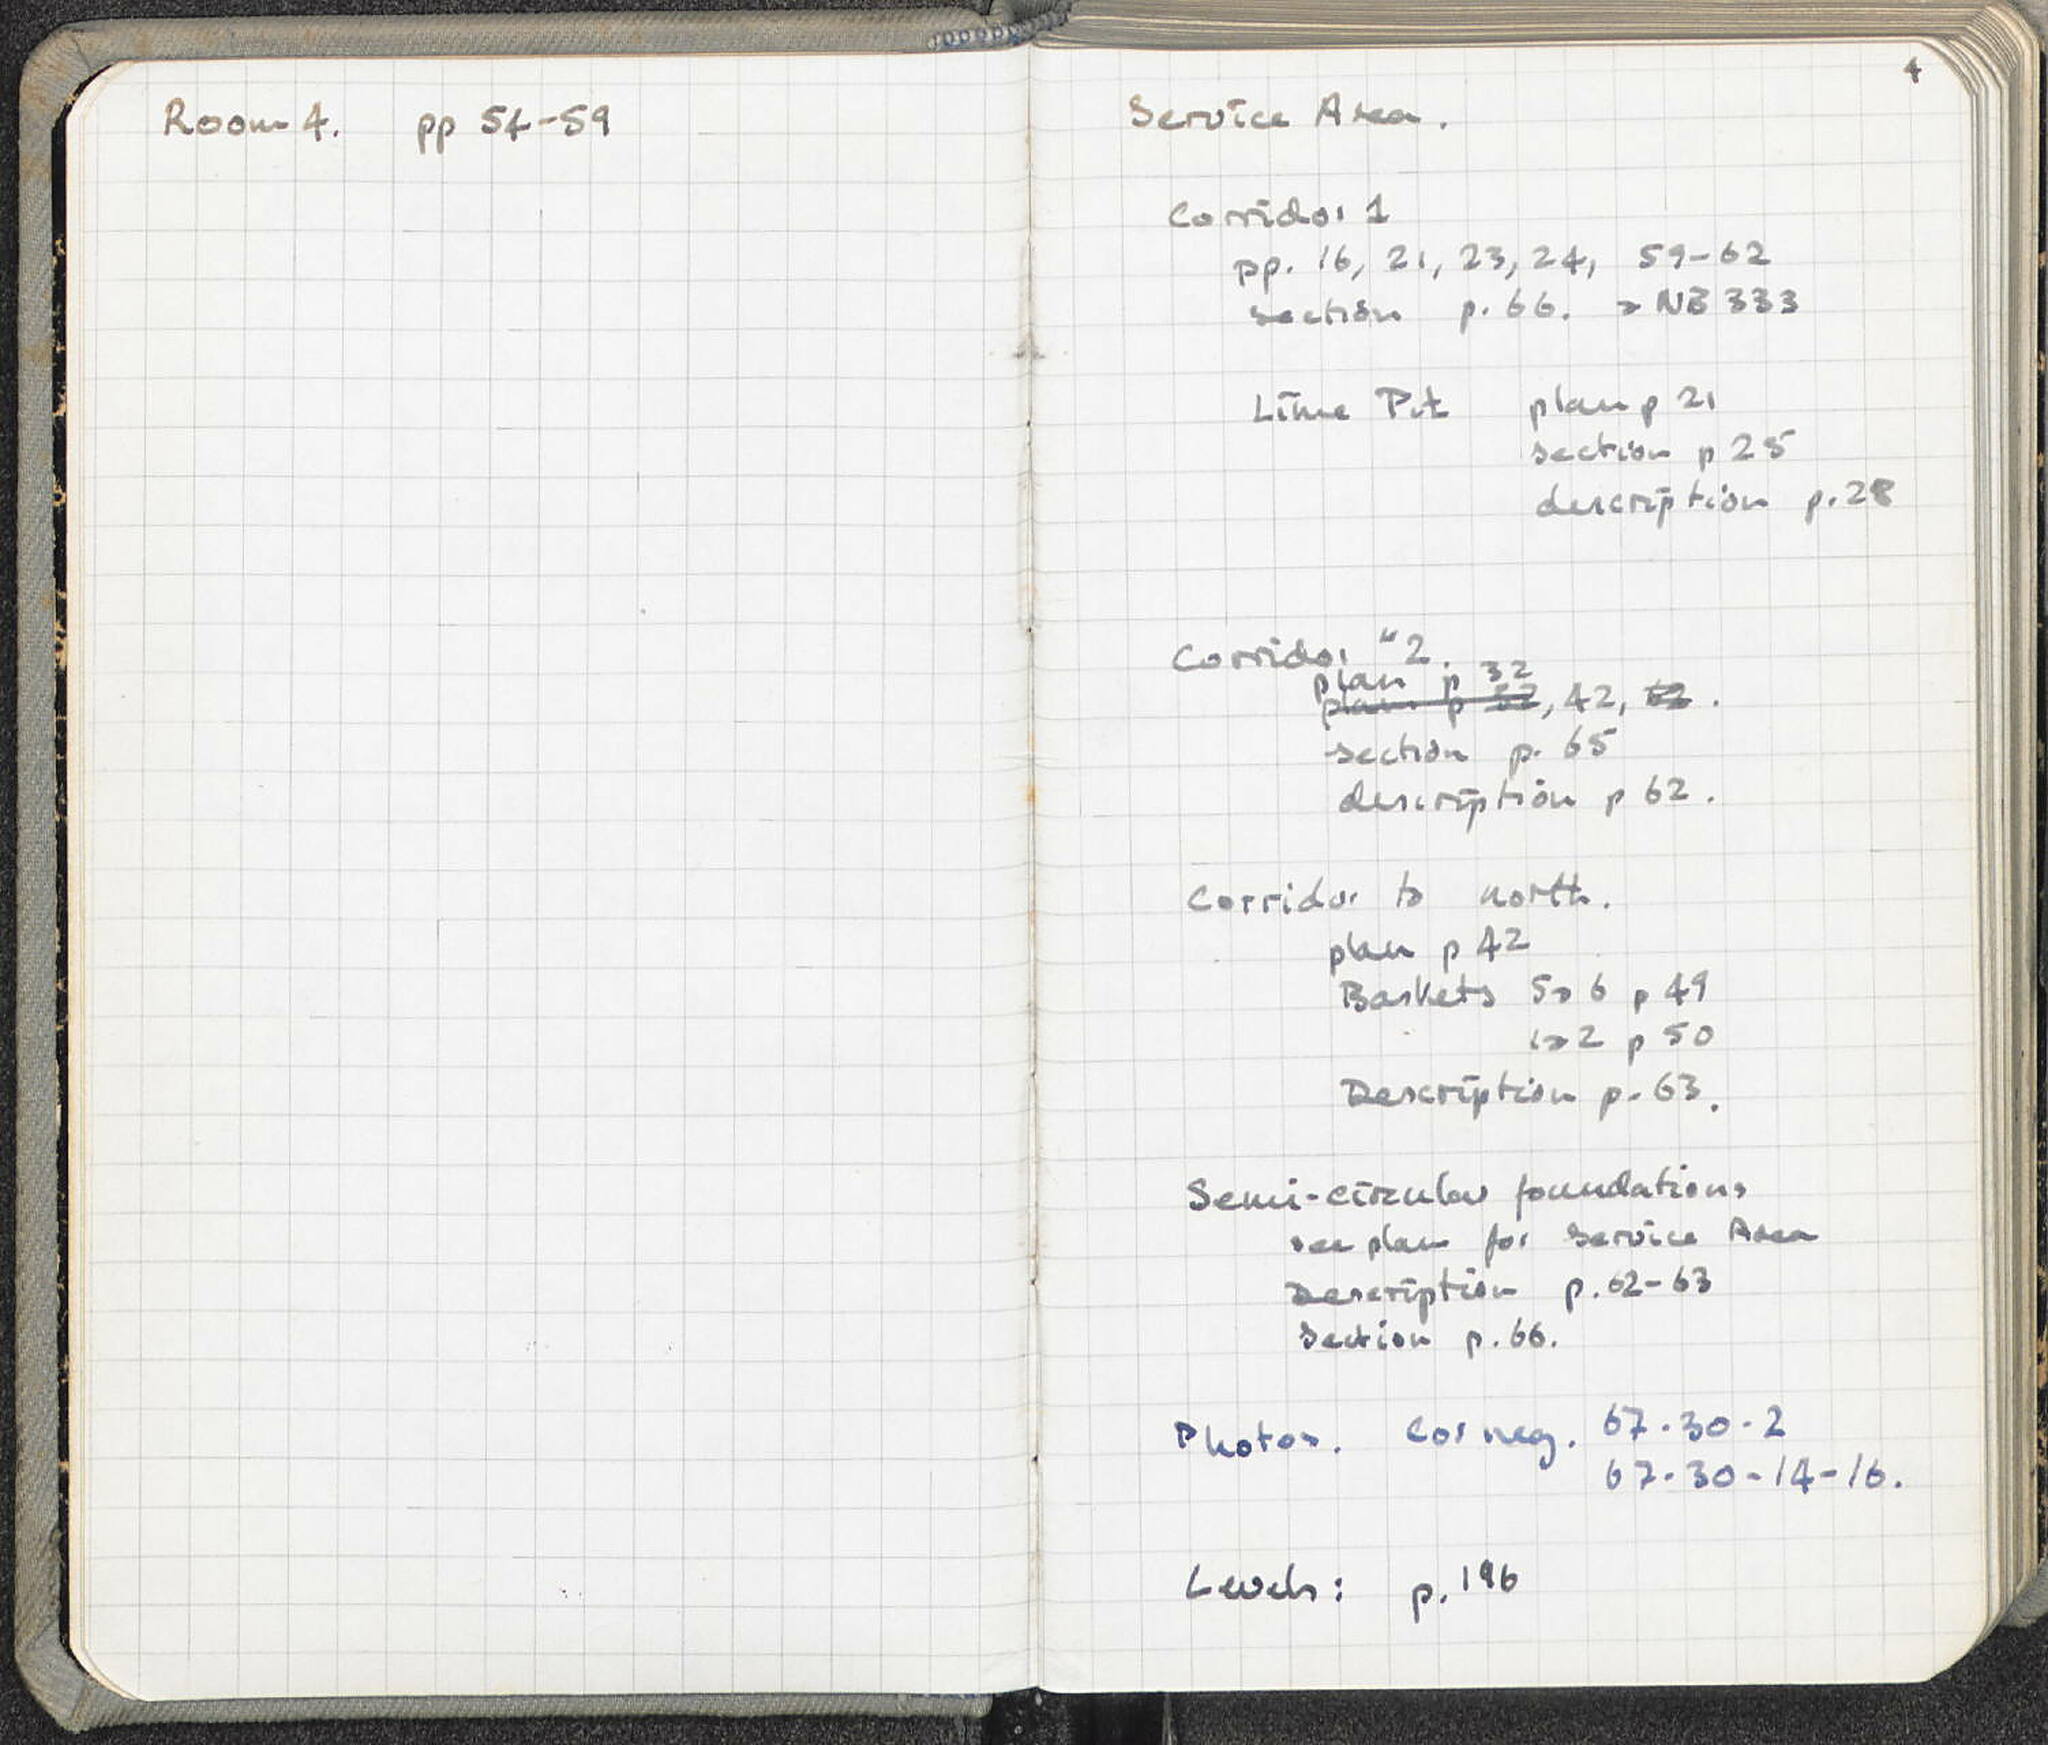 Room 4. pp 54-59
4
Service Area.
Corridor 1
pp. 16, 21, 23, 24, 59-62
section p. 66. → NB 333
Lime Pit plan p 21
section p 25
description p. 28
Corridor "2.
plan p 32
plan p 32, 42, 62.
section p. 65
description p 62.
Corridor to north.
plan p 42
Baskets 5→6 p 49
1→2 p 50
Description p. 63.
Semi-circular foundations
see plan for Service Area
Description p. 62-63
Section p. 66.
Photos. Cor neg. 67-30-2
67-30-14-16.
Levels: p. 196